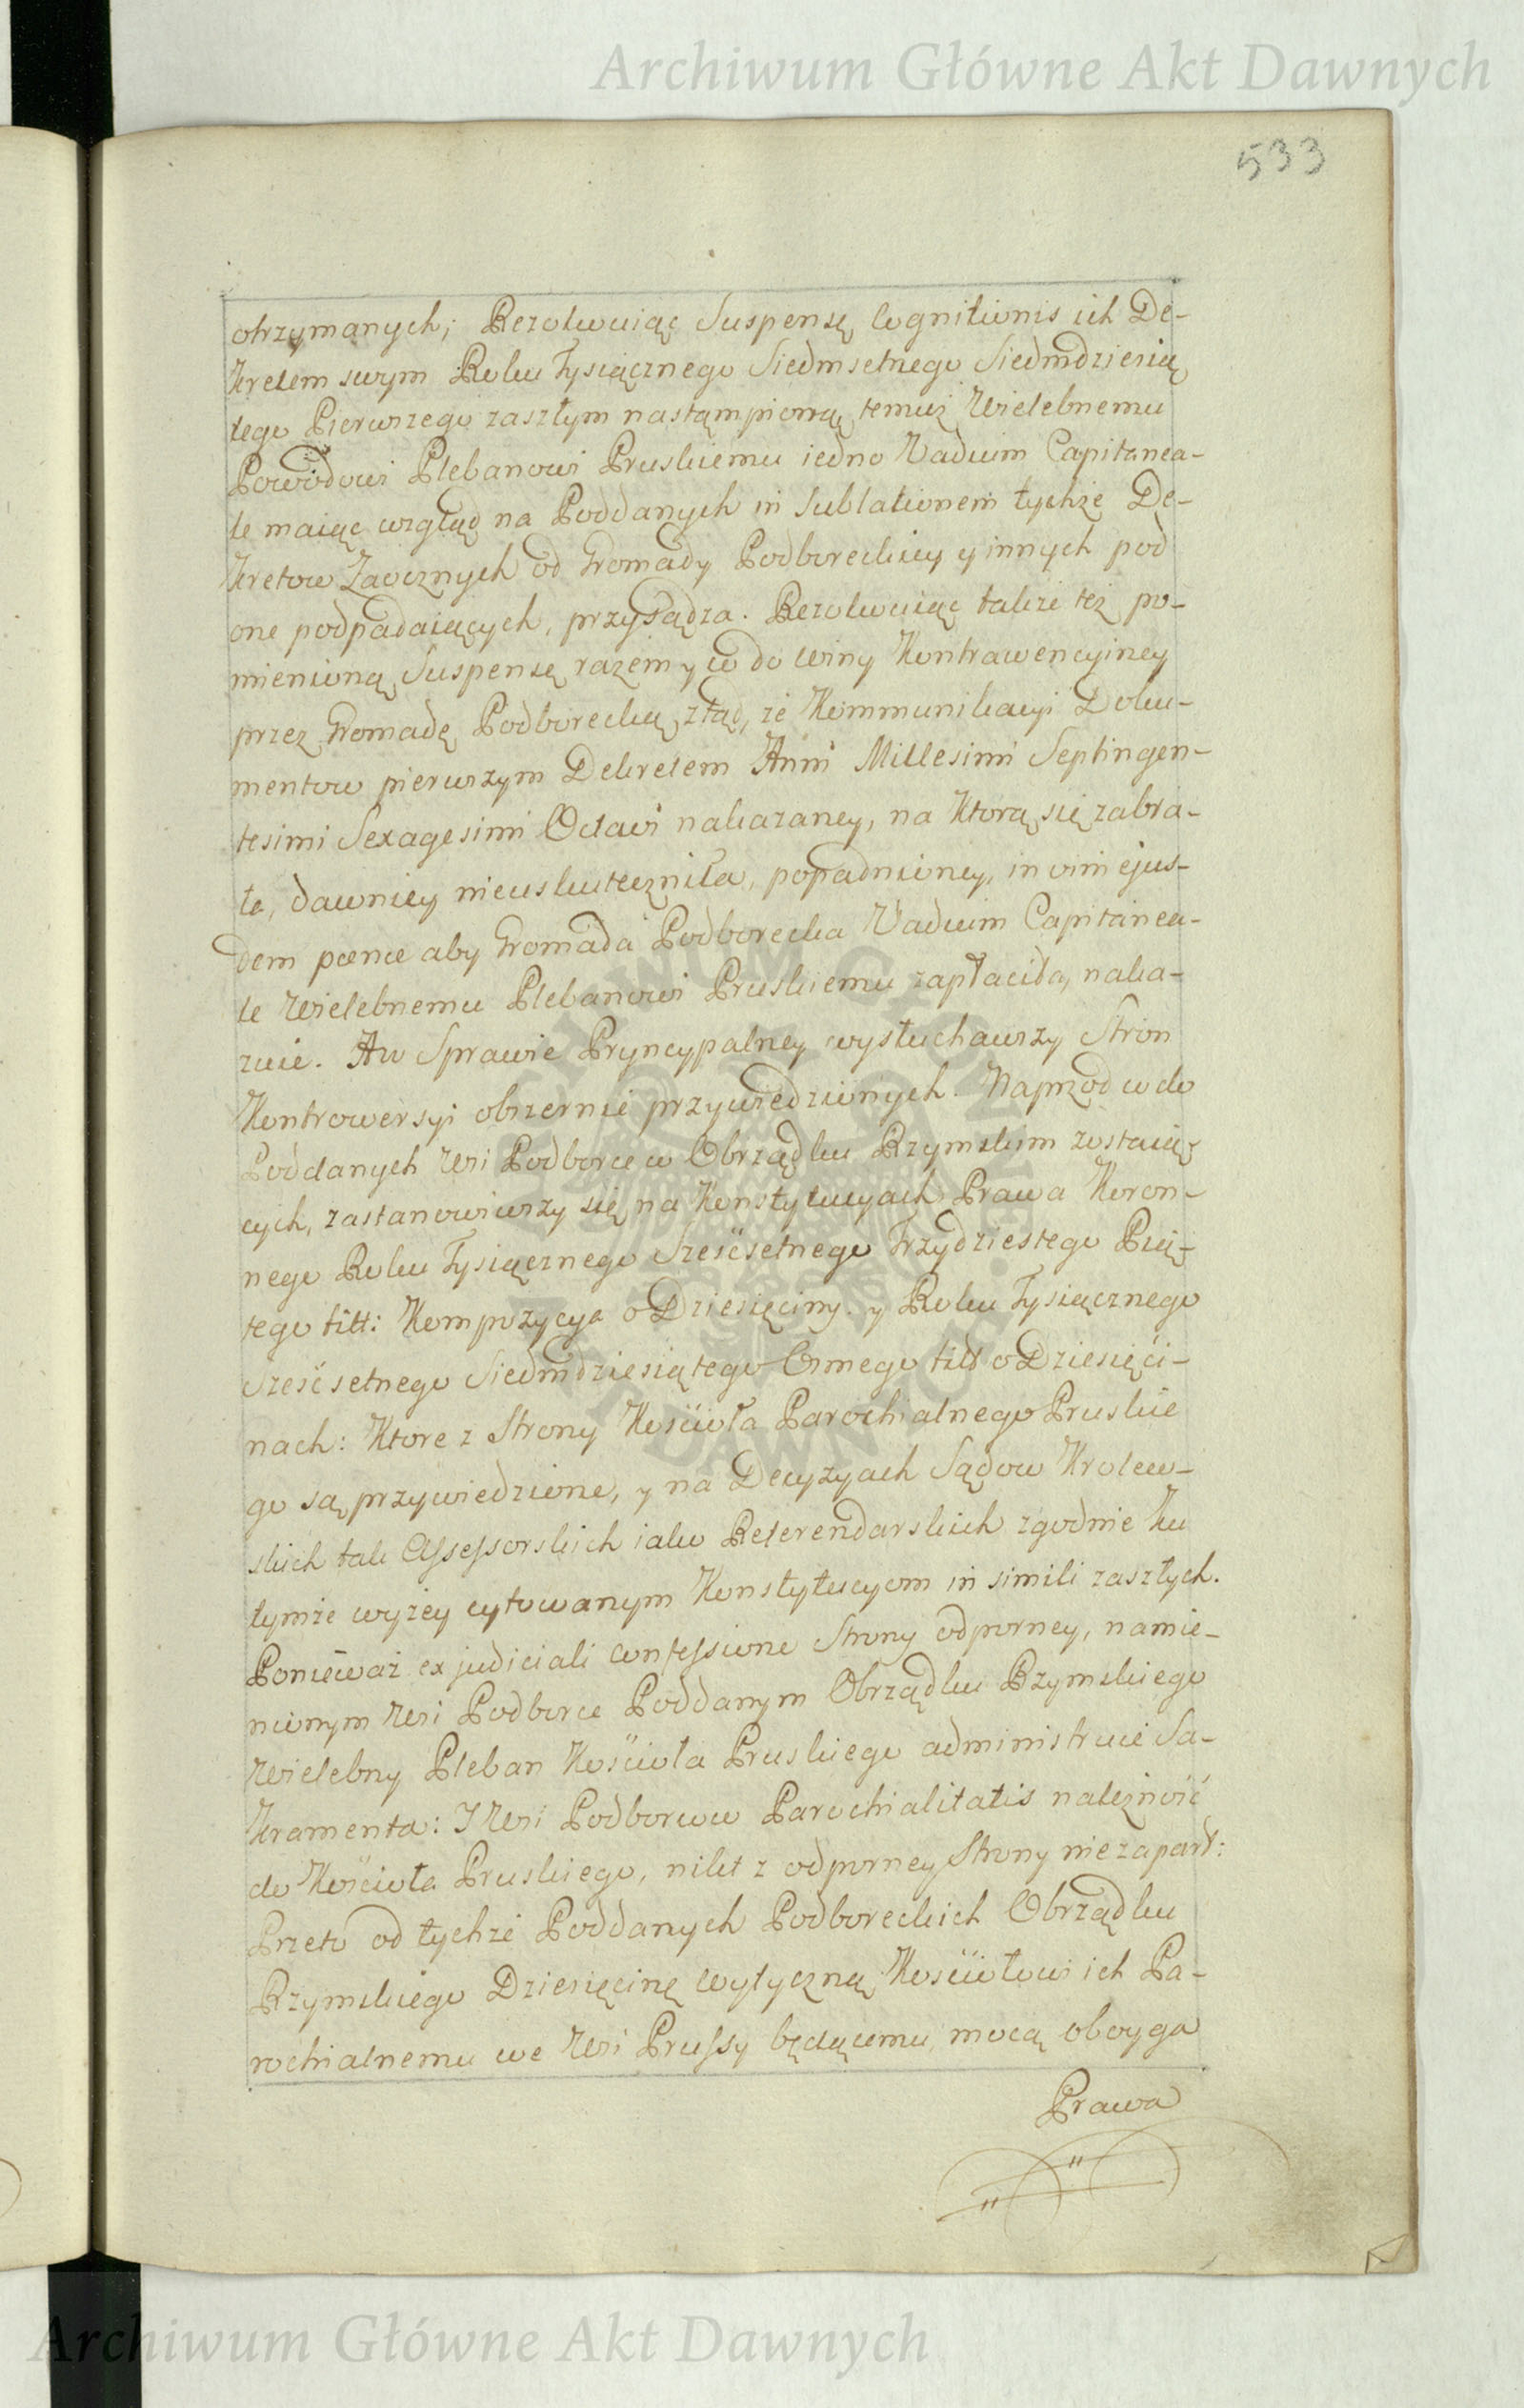 Archiwum Główne Akt Dawnych
533
otrzymanych; Rezolwuiąc Suspensę Cognitionis ich De-
kretem swym Roku Tysiącznego Siedmsetnego Siedmdziesią
tego Pierwszego zaszłym nastąmpioną temuż Wielebnemu
Powodowi Plebanowi Pruskiemu iedno Vadium Capitanea-
le maiąc wzgląd na Poddanych in Sublationem tychże De-
kretow Zaocznych od Gromady Podboreckiey y innych pod
one podpadaiących, przysądza. Rezolwuiąc także też po-
mienioną Suspensę razem y co do winy Kontrawencyiney
przez Gromadę Podborecką ztąd, że Kommunikacyi Doku-
mentow pierwszym Dekretem Anni Millesimi Septingen-
tesimi Sexagesimi Octavi nakazaney, na Ktorą się zabra-
ła, dawniey nieuskuteczniła, popadnioney, in vim ejus-
dem pœnæ aby Gromada Podborecka Vadium Capitanea-
le Wielebnemu Plebanowi Pruskiemu zapłaciła, naka-
zuie. A w Sprawie Pryncypalney wysłuchawszy Stron
Kontrowersyi obszernie przywiedzionych. Naprzod co do
Poddanych Wsi Podborce w Obrządku Rzymskim zostaią-
cych, zastanowiwszy się na Konstytucyach Prawa Koron-
nego Roku Tysiącznego Sześćsetnego Trzydziestego Pią-
tego titt: Kompozycya o Dziesięciny. y Roku Tysiącznego
Sześćsetnego Siedmdziesiątego Osmego titt o Dziesięci-
nach: Ktore z Strony Kościoła Parochialnego Pruskie
go są przywiedzione, y na Decyzyach Sądow Krolew-
skich tak Assessorskich iako Referendarskich zgodnie Ku
tymże wyżey cytowanym Konstytucyom in simili zaszłych.
Ponieważ ex judiciali confessione Strony odporney, namie-
nionym Wsi Podborce Poddanym Obrządku Rzymskiego
Wielebny Pleban Kościoła Pruskiego administruie Sa-
kramenta: I Wsi Podborcow Parochialitatis należność
do Kościoła Pruskiego, nikt z odporney Strony niezaparł:
Przeto od tychże Poddanych Podboreckich Obrządku
Rzymskiego Dziesięcinę wytyczną Kościołowi ich Pa-
rochialnemu we Wsi Prussy będącemu, mocą oboyga
Prawa
Archiwum Główne Akt Dawnych